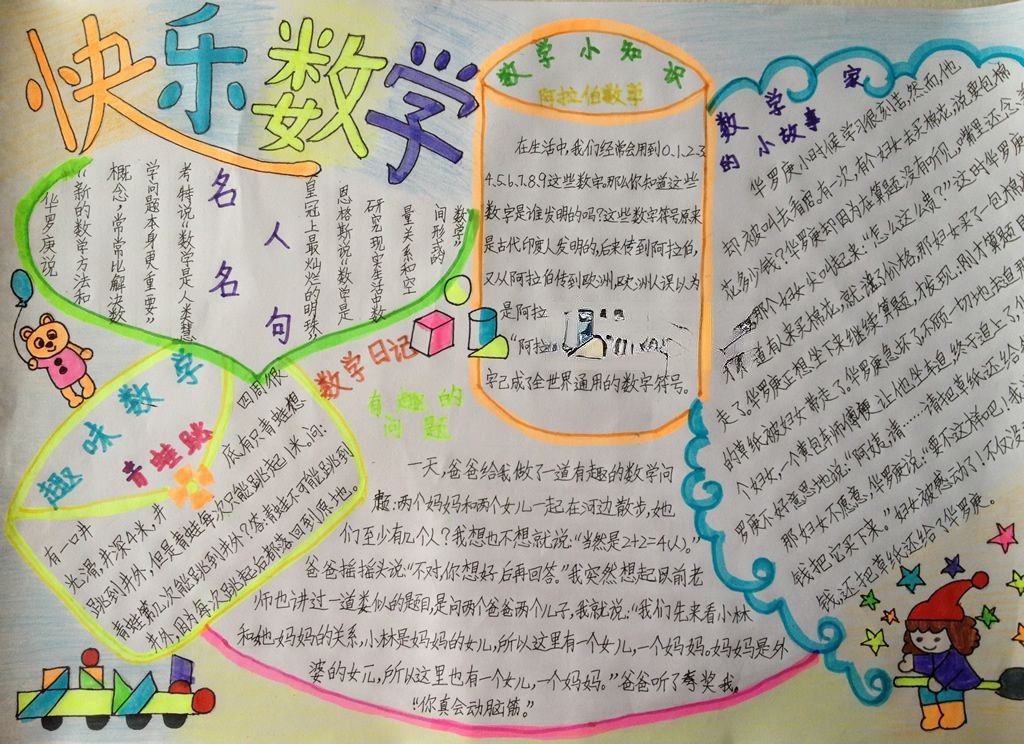 快乐数学
名人名句
华罗庚说
“新的数学方法和
概念,常常比解决数
学问题本身更重要”
考特说“数学是人类智慧
皇冠上最灿烂的明珠”
恩格斯说“数学是
研究现实生活中数
量关系和空
间形式的
数学”
数学小知识
阿拉伯数学
在生活中,我们经常会用到0.1.2.3
4.5.6.7.8.9这些数字。那么你知道这些
数字是谁发明的吗?这些数字符号原来
是古代印度人发明的,后来传到阿拉伯,
又从阿拉伯传到欧洲,欧洲人误以为
是阿拉
“阿拉
字已成了全世界通用的数字符号。
数学家
的小故事
华罗庚小时候学习很刻苦,然而他,
却被叫去看店。有一次,有个妇女去买棉花,说要包棉
花多少钱?华罗庚却因为在算题,没有听见,嘴里还念
那个妇女尖叫起来:“怎么这么贵?”这时华罗庚
道有人来买棉花,就说了价格,那妇女买了一包棉
走了。华罗庚正想坐下来继续算题,才发现:刚才算题
的草纸被妇女带走了。华罗庚急坏了,不顾一切地去追
个妇女,一个黄包车师傅便让他坐车追,终于追上了,华
罗庚不好意思地说:“阿姨,请……请把草纸还给
那妇女不愿意,华罗庚说:“要不这样吧!我
钱把它买下来。”妇女被感动了!不仅没
钱,还把草纸还给了华罗庚。
趣味数学
青蛙跳
有一口井
四周很
光滑,井深4米,井
底有只青蛙想
跳到井外,但是青蛙每次只能跳起1米,问:
青蛙第几次能跳到井外?答:青蛙不可能跳到
井外,因为每次跳起后都落回到原地。
数学日记
有趣的
问题
一天,爸爸给我做了一道有趣的数学问
题:两个妈妈和两个女儿一起在河边散步,她
们至少有几个人?我想也不想就说:“当然是2+2=4(人)。”
爸爸摇摇头说:“不对,你想好后再回答。”我突然想起以前老
师也讲过一道类似的题目,是问两个爸爸两个儿子,我就说:“我们先来看小林
和她妈妈的关系,小林是妈妈的女儿,所以这里有一个女儿,一个妈妈。妈妈是外
婆的女儿,所以这里也有一个女儿,一个妈妈。”爸爸听了夸奖我。
“你真会动脑筋。”